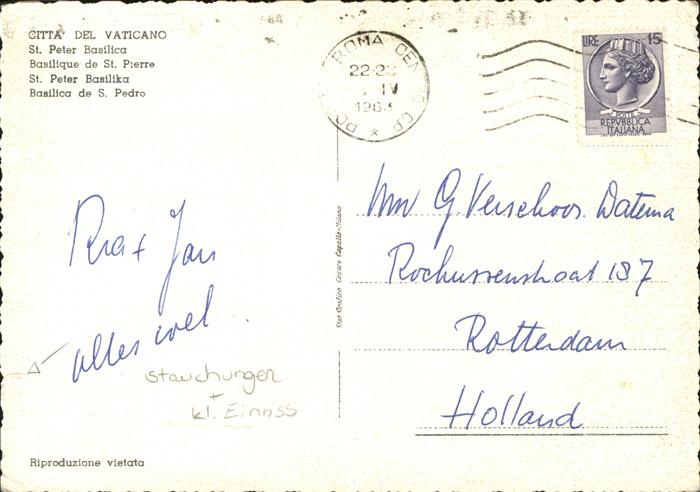 CITTA' DEL VATICANO
St. Peter Basilica
Basilique de St. Pierre
St. Peter Basilika
Basilica de S. Pedro
ROMA
22-2
IV
LIRE 15
POSTE
REPVBBLICA
ITALIANA
G. Verschoor. Datema
Rochussenstraat 187
Rotterdam
Holland
Ria + Jan
alles wel
Stauchungen
+
kl. Einriss
Riproduzione vietata